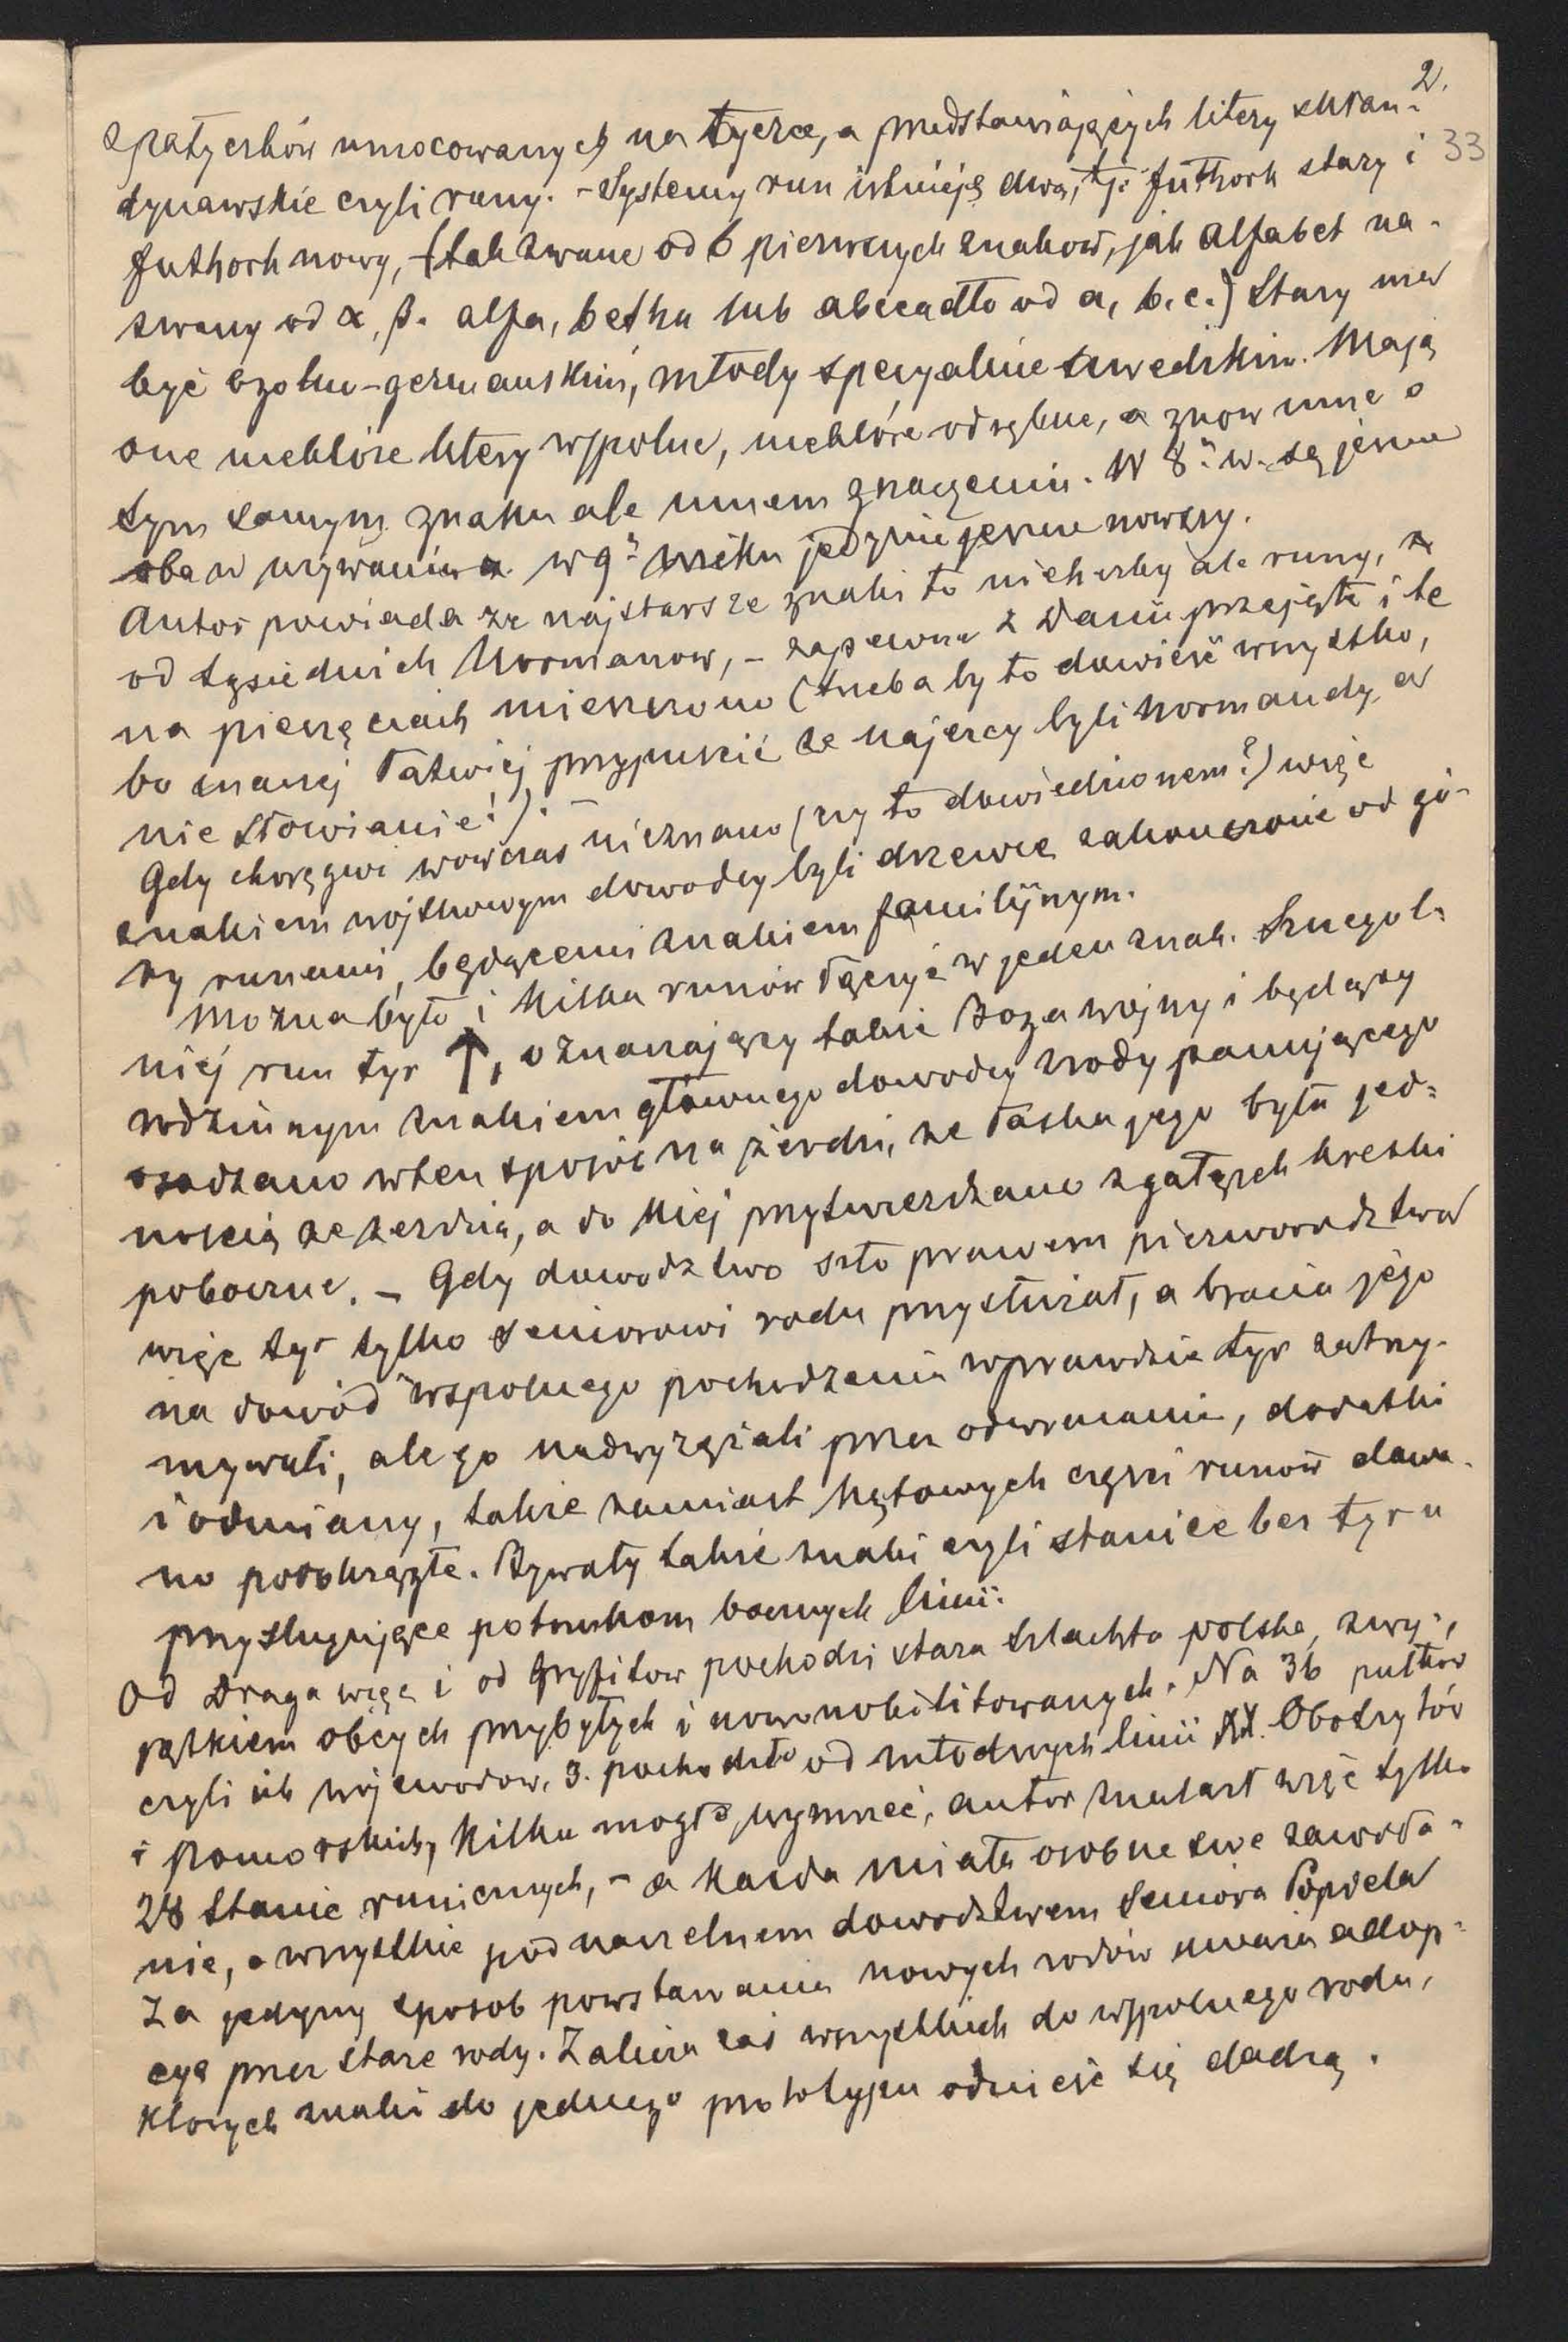 2.
z patyczków umocowanych na tyczce, a przedstawiających litery skan-
33
dynawskie czyli runy. – Systemy run istnieją dwa, tj. futhork stary i
futhork nowy, (tak zwane od 6 pierwszych znaków, jak alfabet na-
zwany od α, β. alfa, betha lub abecadło od a, b. c.) Stary ma
być ogólno-germańskim, młody specyalnie szwedzkim. Mają
one niektóre litery wspólne, niektóre odrębne, a znow inne o
tym samym znaku ale innem znaczeniu. W 8.m w. są jeszcze
oba w używaniu w 9.m wieku jedynie jeszcze nowszy.
Autor powiada że najstarsze znaki to nie herby ale runy,
od sąsiednich Normanow, – zapewne z Danii przejęte i te
na pieczęciach mieszczono (trzeba by to dowieść wszystko,
bo inaczej łatwiej przypuścić że najezcy byli Normandy, a
nie Słowianie!). –
Gdy chorągwi wówczas nieznano (czy to dowiedzionem?) więc
znakiem wojskowym dowodcy byli drzewce zakonczone od gó-
ry runami, będącemi znakiem familijnym.
Można było i kilka runów łączyć w jeden znak. Szczegól-
niej run tyr ↑, oznaczający także Boga wojny i będący
rodzinnym znakiem głównego dowodcy rody panującego
osadzano w ten sposób na żerdzi, że laska jego była jed-
nością ze żerdzią, a do niej przytwierdzano z gałązek kreski
poboczne. – Gdy dowodztwo szło prawem pierworodztwa
więc tyr tylko seniorowi rodu przysłużał, a bracia jego
na dowód wspolnego pochodzenia wprawdzie tyr zatrzy-
mywali, ale go nadwyrężali przez odwracanie, dodatki
i odmiany, także zamiast kątowych części runów dawa-
no podokrągłe. Bywały także znaki czyli stanice bez tyru
przysługujące potomkom bocznych linii.
Od Draga więc i od Gryfitow pochodzi stara szlachta polska, z wy-
jątkiem obcych przybyłych i nowonobilitowanych. Na 36 pułkow
czyli ich wojewodow, 3. pochodziło od młodszych linii XX. Obotrytów
i Pomorskich, kilku mogło wymrzeć, autor znalazł więc tylko
28 stanic runicznych, – a każda miała osobne swe zawoła-
nie, a wszystkie pod naczelnem dowodztwem Seniora Popiela
Za jedyny sposob powstawania nowych rodów uważa adop-
cyą przez stare rody. Zalicza zaś wszystkich do wspolnego rodu,
ktorych znaki do jednego prototypu odnieść się dadzą.